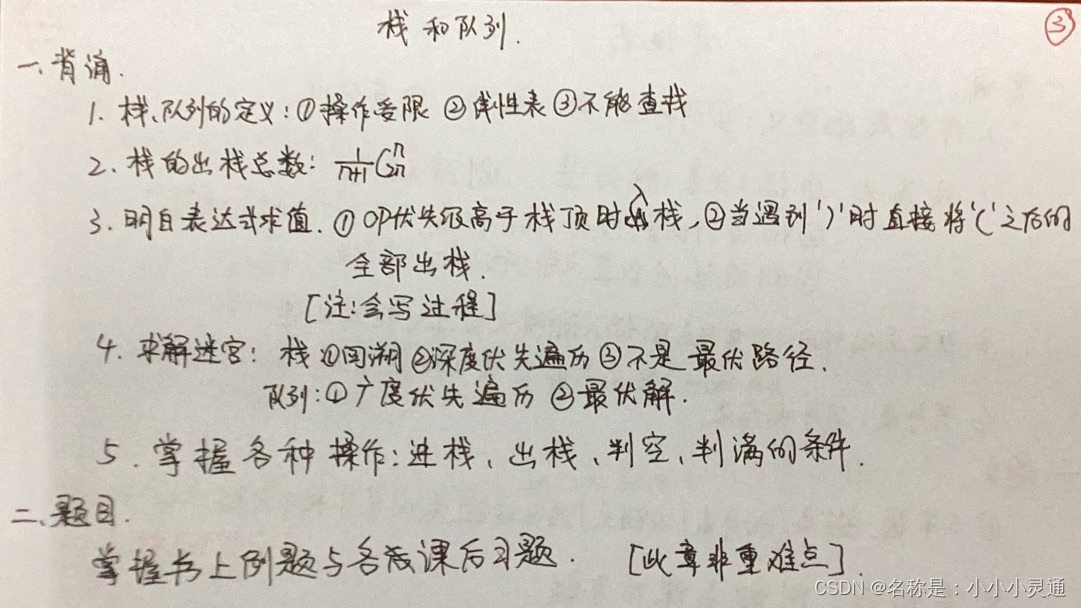 栈和队列.
③
一、背诵.
1. 栈、队列的定义:①操作受限 ②线性表 ③不能查找
2. 栈的出栈总数: 1/(n+1) C₂ₙⁿ
3. 明白表达式求值. ①OP优先级高于栈顶时入栈, ②当遇到')'时直接将'('之后的
全部出栈.
[注:会写过程]
4. 求解迷宫: 栈 ①回溯 ②深度优先遍历 ③不是最优路径.
队列:①广度优先遍历 ②最优解.
5. 掌握各种操作:进栈、出栈、判空、判满的条件.
二、题目.
掌握书上例题与各类课后习题. [此章非重难点].
CSDN @名称是:小小小灵通